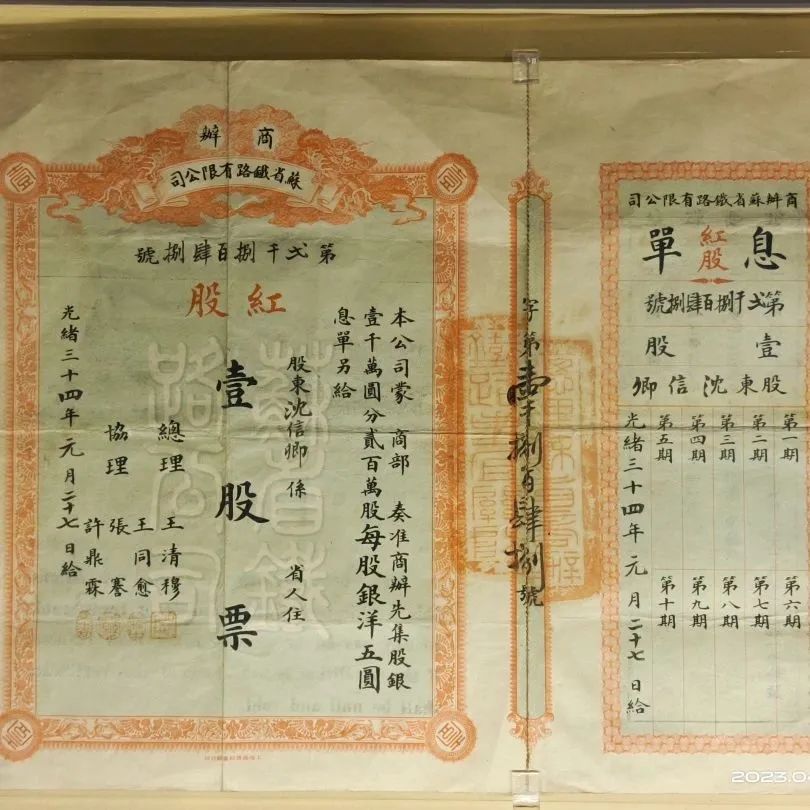 商辦
蘇省鐵路有限公司
第弍千捌百肆捌號
紅股
本公司蒙 商部 奏准商辦先集股銀
壹千萬圓分貳百萬股每股銀洋五圓
息單另給
股東沈信卿係 省人住
壹股票
總理 王清穆
王同愈
協理 張謇
許鼎霖
光緒三十四年元月二十七日給
字第壹千捌百肆捌號
商辦蘇省鐵路有限公司
紅股
息單
第弍千捌百肆捌號
壹股
股東沈信卿
第一期 第六期
第二期 第七期
第三期 第八期
第四期 第九期
第五期 第十期
光緒三十四年元月二十七日給